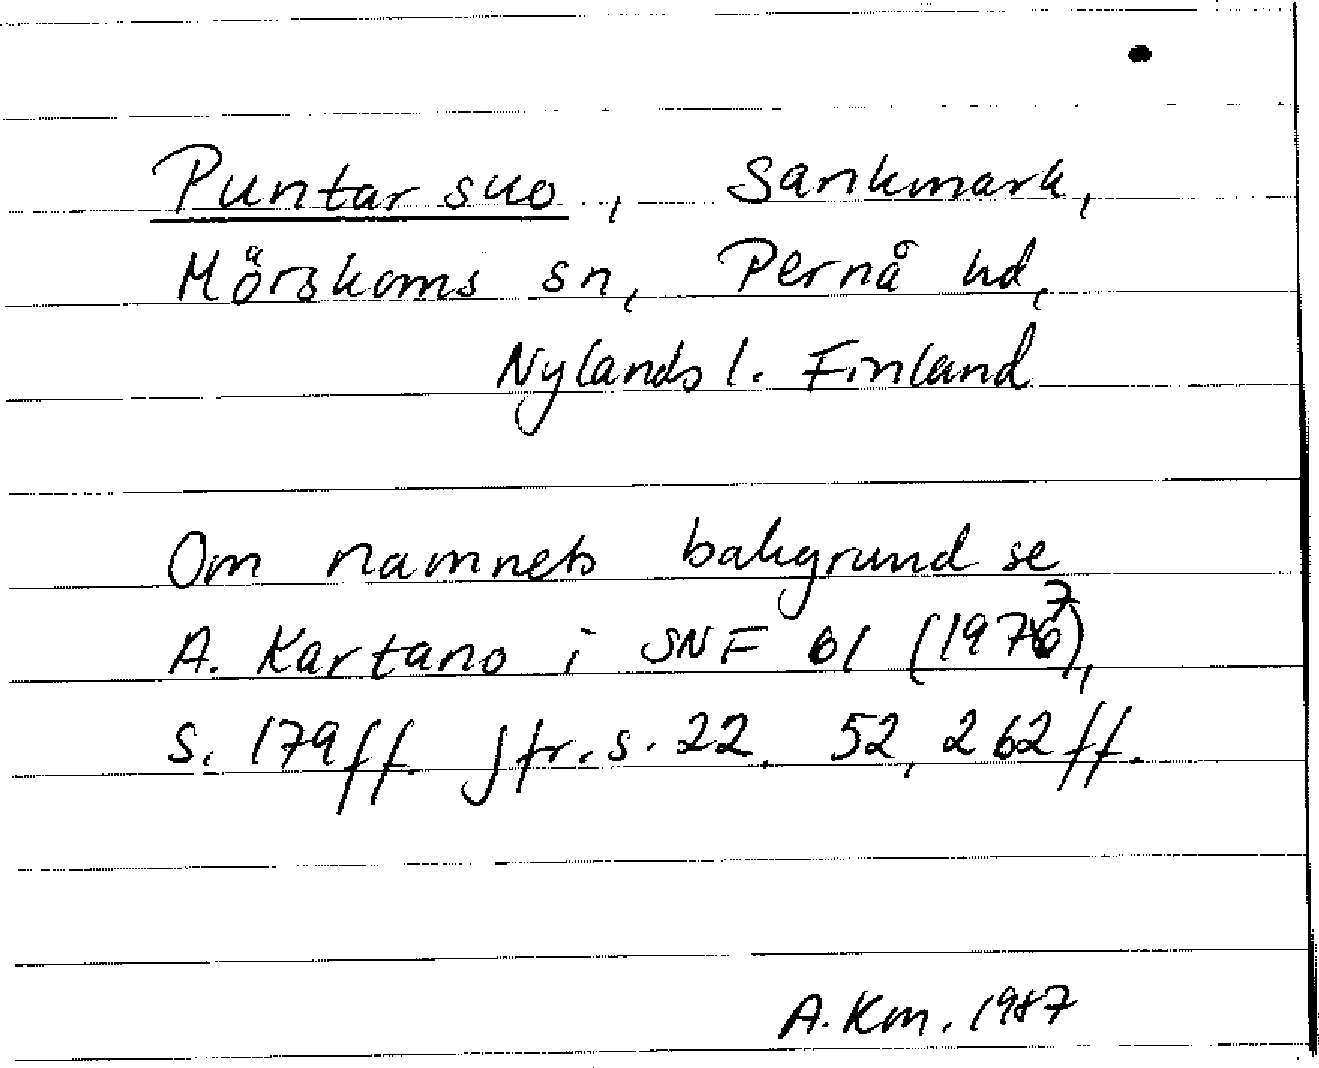 Puntar suo, Sankmark,
Mörskoms sn, Pernå hd,
Nylands l. Finland
Om namnets bakgrund se
A. Kartano i SNF 61 (1977),
s. 179 ff. Jfr. s. 22, 52, 262 ff.
A. Km. 1987